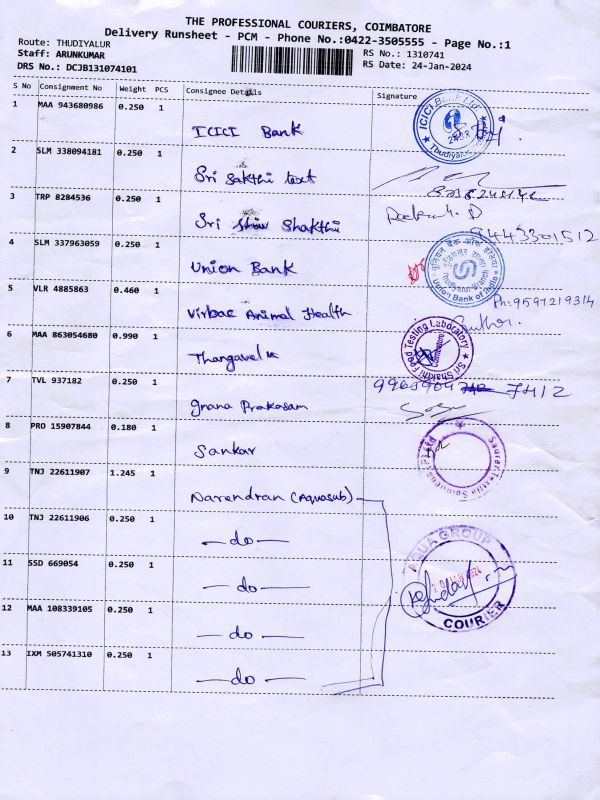 THE PROFESSIONAL COURIERS, COIMBATORE
Delivery Runsheet - PCM - Phone No.:0422-3505555 - Page No.:1
Route: THUDIYALUR
RS No.: 1310741
Staff: ARUNKUMAR
RS Date: 24-Jan-2024
DRS No.: DCJB131074101
S No Consignment No Weight PCS Consignee Details Signature
1 MAA 943680986 0.250 1 ICICI Bank
ICICI Bank Ltd
2 SLM 338094181 0.250 1 Sri Sakthi text
3 TRP 8284536 0.250 1 Sri Shakthi
9443301512
4 SLM 337963059 0.250 1 Union Bank
Union Bank of India
5 VLR 4885863 0.460 1 Virbac Animal Health
Ph:9597219314
6 MAA 863054680 0.990 1 Thangavel
Sri Shakthi Feed Testing Laboratory
Coimbatore
7 TVL 937182 0.250 1 Gnana Prakasam
8 PRO 15907844 0.180 1 Sankar
9 TNJ 22611907 1.245 1 Narendran (Aquasub)
10 TNJ 22611906 0.250 1 -do-
AQUA GROUP
11 SSD 669054 0.250 1 -do-
12 MAA 108339105 0.250 1 -do-
COURIER
13 IXM 505741310 0.250 1 -do-